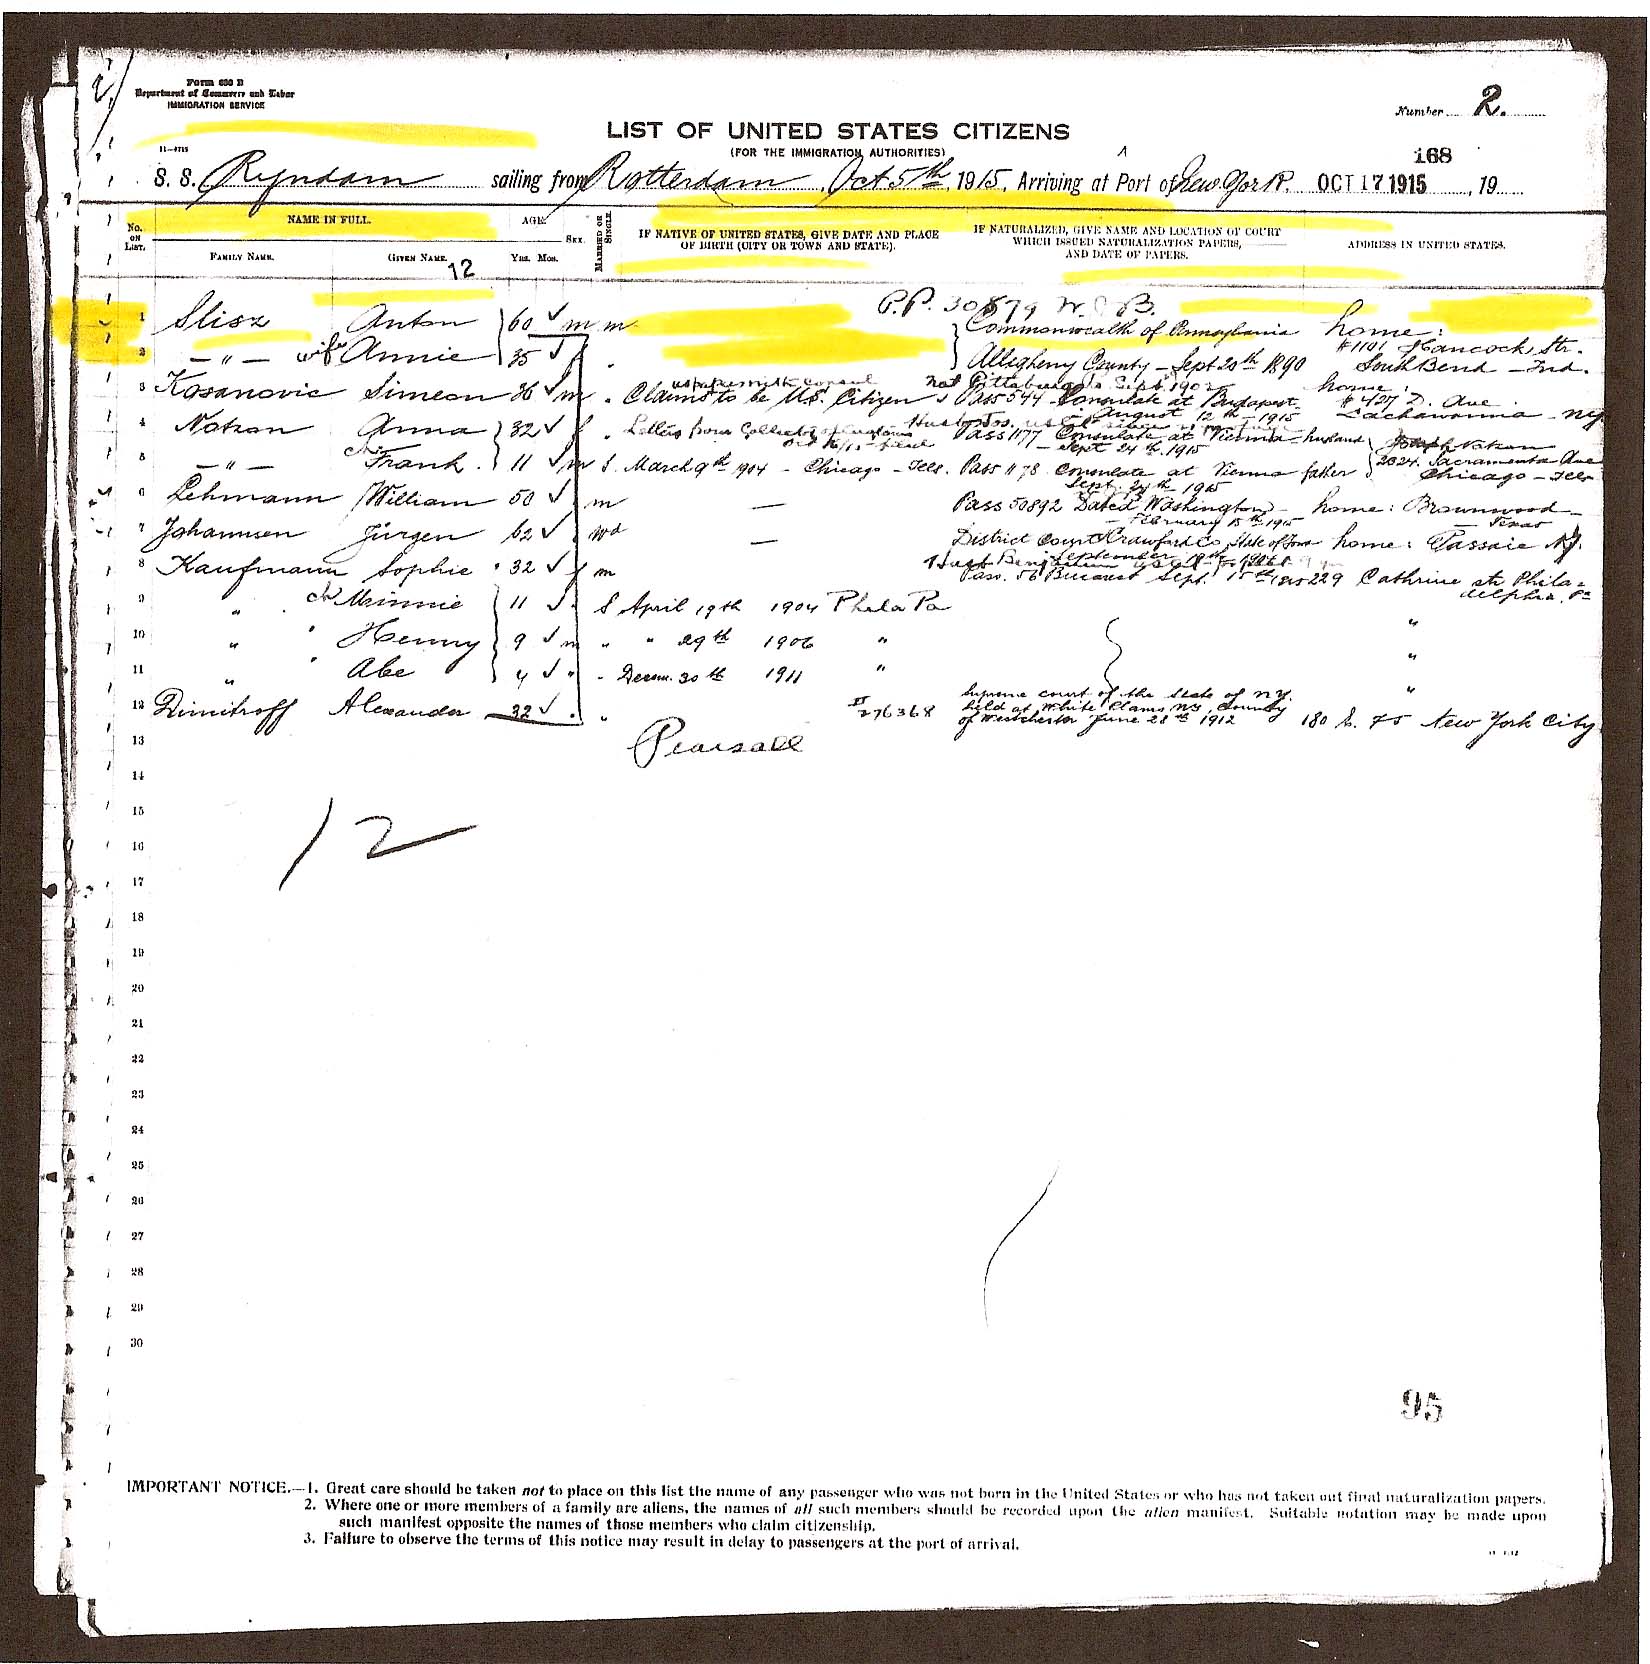 Form 630 B
Department of Commerce and Labor
IMMIGRATION SERVICE
Number 2.
LIST OF UNITED STATES CITIZENS
(FOR THE IMMIGRATION AUTHORITIES)
11—4715
168
S. S. Ryndam sailing from Rotterdam, Oct 5th, 1915, Arriving at Port of New York. OCT 17 1915, 19
No. ON LIST.
NAME IN FULL.
FAMILY NAME.
GIVEN NAME.
12
AGE.
YRS. MOS.
SEX.
MARRIED OR SINGLE.
IF NATIVE OF UNITED STATES, GIVE DATE AND PLACE
OF BIRTH (CITY OR TOWN AND STATE).
IF NATURALIZED, GIVE NAME AND LOCATION OF COURT
WHICH ISSUED NATURALIZATION PAPERS,
AND DATE OF PAPERS.
ADDRESS IN UNITED STATES.
P.P. 30879 W. B.
1 Slisz Anton 60 m m Commonwealth of Pennsylvania home:
#1101 Hancock Str.
2 — " — wife Annie 35 Allegheny County - Sept 20th 1890 South Bend - Ind.
3 Kosanovic Simeon 36 m Claims to be U.S. Citizen Pass 544 Consulate at Budapest home: #437 D. Ave
August 12th - 1915 Lackawanna - NY.
4 Notzan Anna 32 f Letters from Collector Pass 1177 Consulate at Vienna husband Joseph Notzan
Sept 24th 1915
5 — " — ch Frank. 11 m S. March 9th 1904 - Chicago - Ills. Pass 1178 Consulate at Vienna father 2024. Sacramento Ave
Sept. 24th 1915 Chicago - Ills
6 Lehmann William 50 m — Pass 50892 Dated Washington home: Brownwood -
February 15th 1915 - Texas
7 Johannsen Jürgen 62 wd — District Court Crawford Co. State of Iowa home: Passaic NJ.
September
8 Kaufmann Sophie 32 f m Pass. 56 Bucarest Sept. 15th 1915 229 Cathrine str Phila=
delphia. Pa
9 " ch Minnie 11 S April 19th 1904 Phila Pa "
10 " " Henry 9 m " " 29th 1906 " "
11 " " Abe 4 " - Decem. 30th 1911 " "
12 Dimitroff Alexander 32 " 276368 Supreme court of the State of NY.
held at White Plains, NY, County
of Westchester June 28th 1912 180 E. 75 New York City
13
Pearsall
14
15
12
16
17
18
19
20
21
22
23
24
25
26
27
28
29
30
95
IMPORTANT NOTICE.—1. Great care should be taken not to place on this list the name of any passenger who was not born in the United States or who has not taken out final naturalization papers.
2. Where one or more members of a family are aliens, the names of all such members should be recorded upon the alien manifest. Suitable notation may be made upon
such manifest opposite the names of those members who claim citizenship.
3. Failure to observe the terms of this notice may result in delay to passengers at the port of arrival.